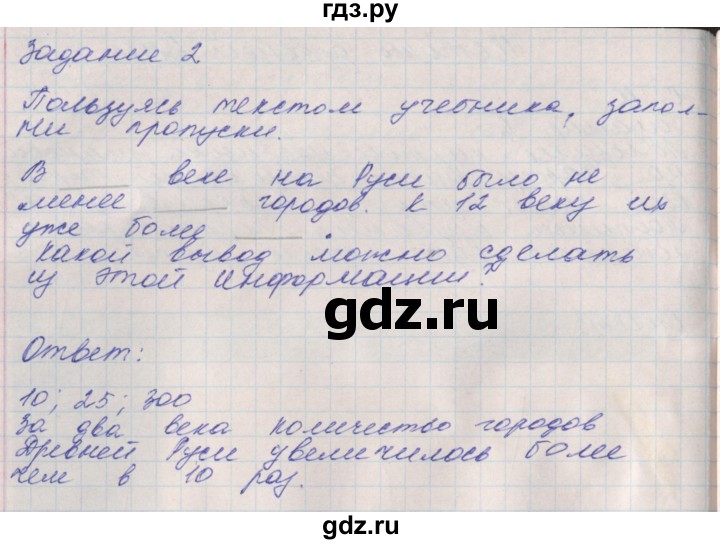 гдз.ру
Задание 2
Пользуясь текстом учебника, запол-
ни пропуски.
В ____ веке на Руси было не
менее ____ городов. К 12 веку их
уже более ____.
Какой вывод можно сделать
из этой информации?
gdz.ru
Ответ:
10; 25; 300
За два века количество городов
Древней Руси увеличилось более
чем в 10 раз.
gdz.ru